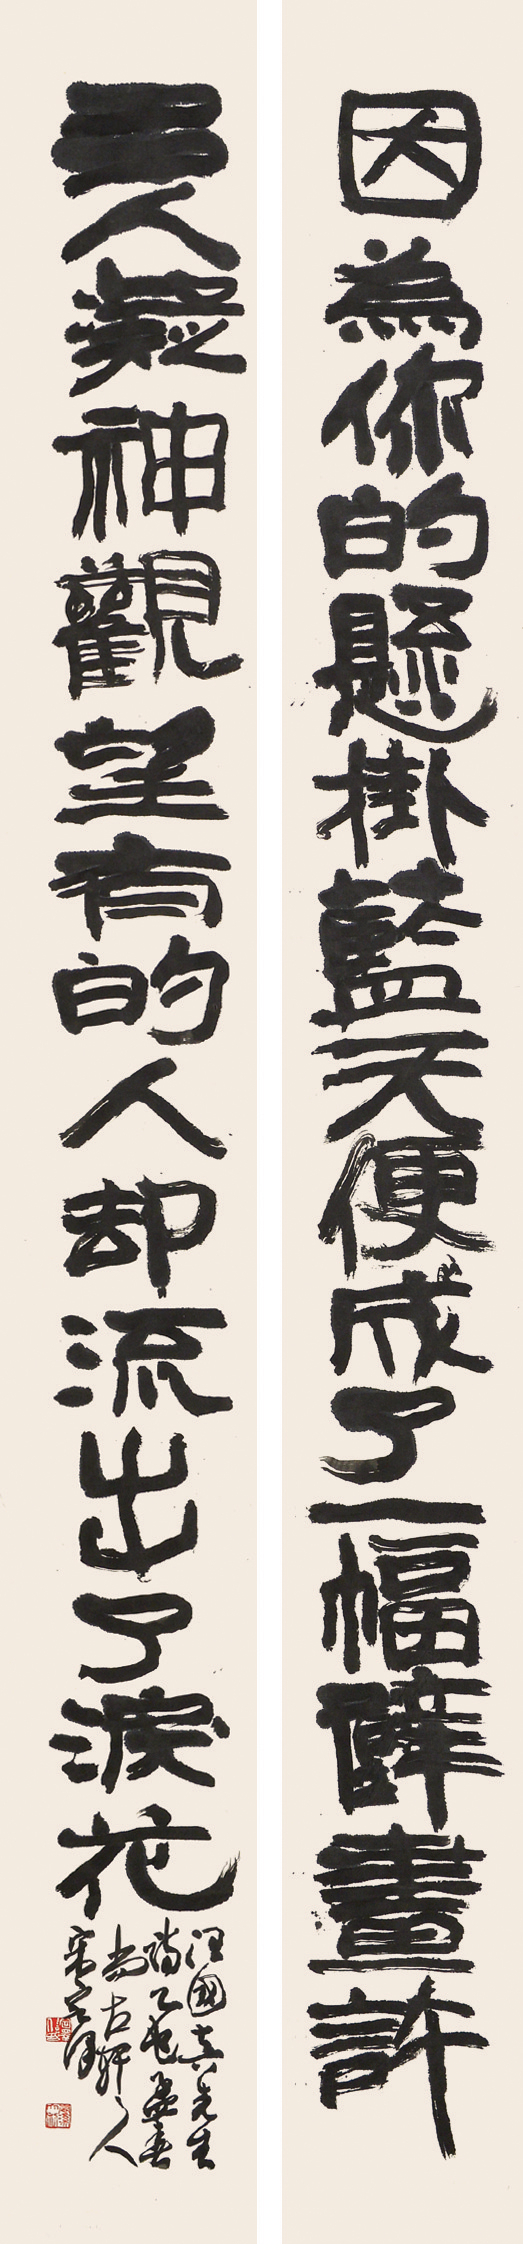 因為你的懸掛藍天便成了一幅壁畫許
多人凝神觀望有的人却流出了淚花
汪國真先生
詩乙巳孟春
尚古軒人